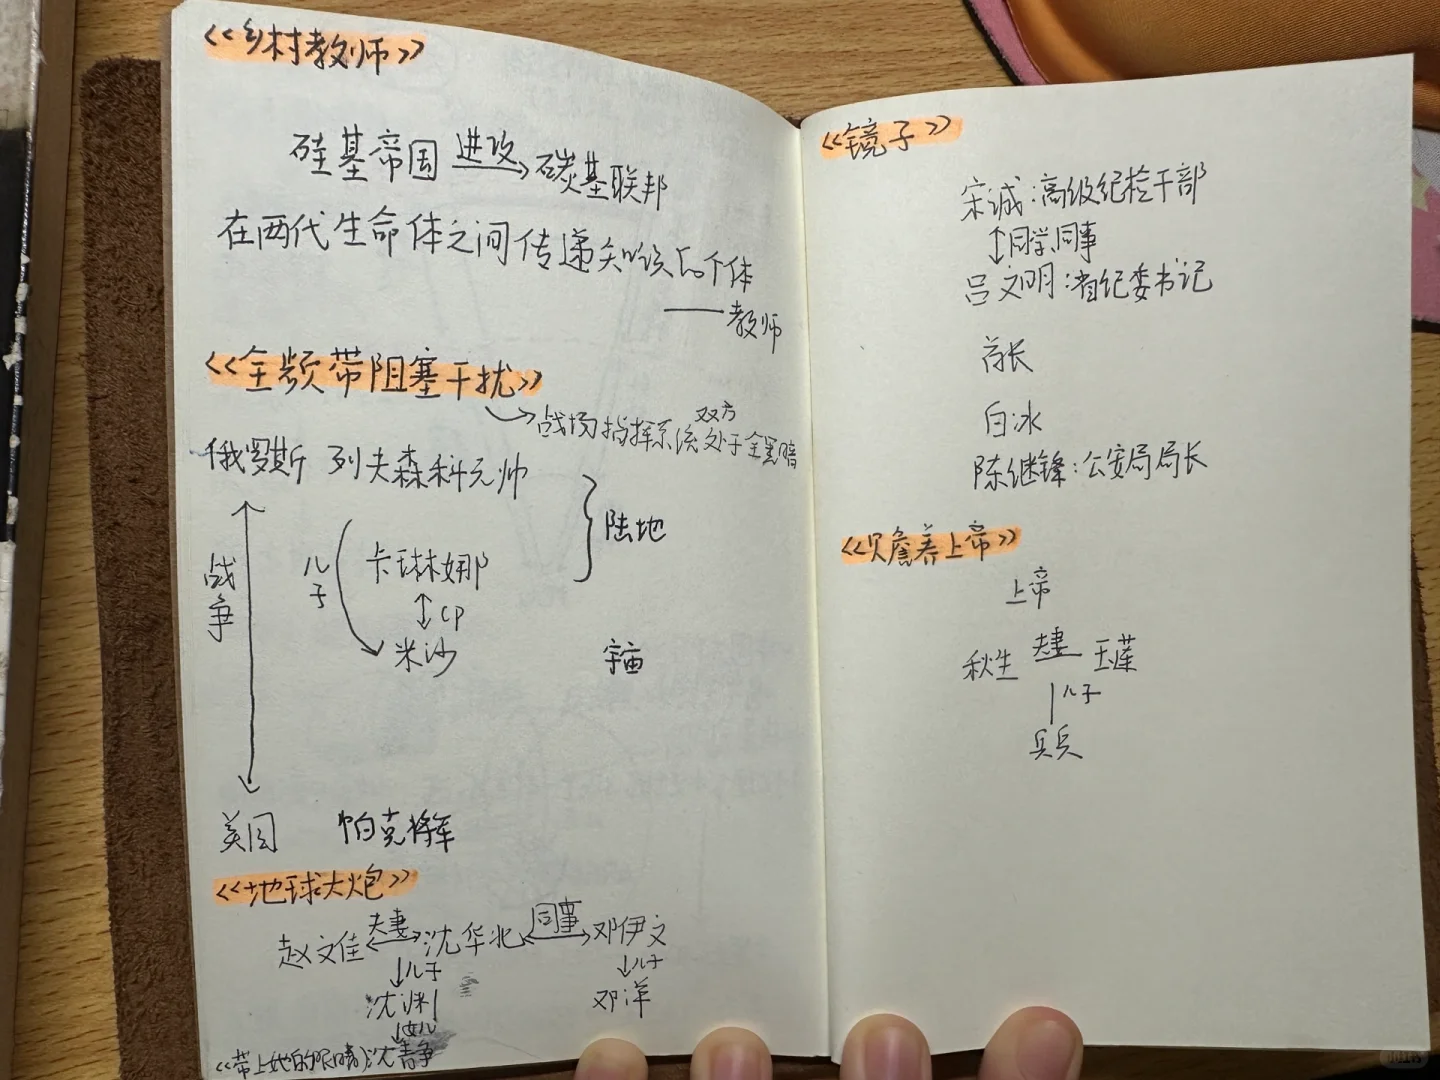 《乡村教师》
硅基帝国 进攻 碳基联邦
在两代生命体之间传递知识的个体
——教师
《全频带阻塞干扰》
战场指挥系统双方处于全黑暗
俄罗斯 列夫森科元帅
陆地
战争
儿子
卡琳娜
CP
米沙
宇宙
美国 帕克将军
《地球大炮》
赵文佳 夫妻 沈华北 同事 邓伊文
儿子 儿子
沈渊 邓洋
女儿
《带上她的眼睛》沈静
《镜子》
宋诚:高级纪检干部
同学、同事
吕文明:省纪委书记
首长
白冰
陈继锋:公安局局长
《赡养上帝》
上帝
秋生 夫妻 玉莲
儿子
兵兵